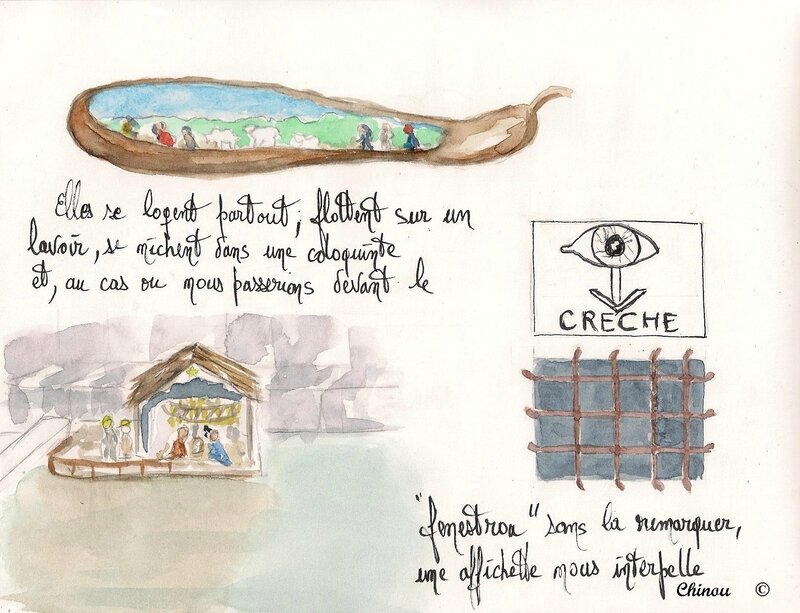 Elles se logent partout, flottent sur un
lavoir, se nichent dans une coloquinte
et, au cas ou nous passerions devant le
CRECHE
"fenestrou" sans la remarquer,
une affichette nous interpelle
Chinou ©